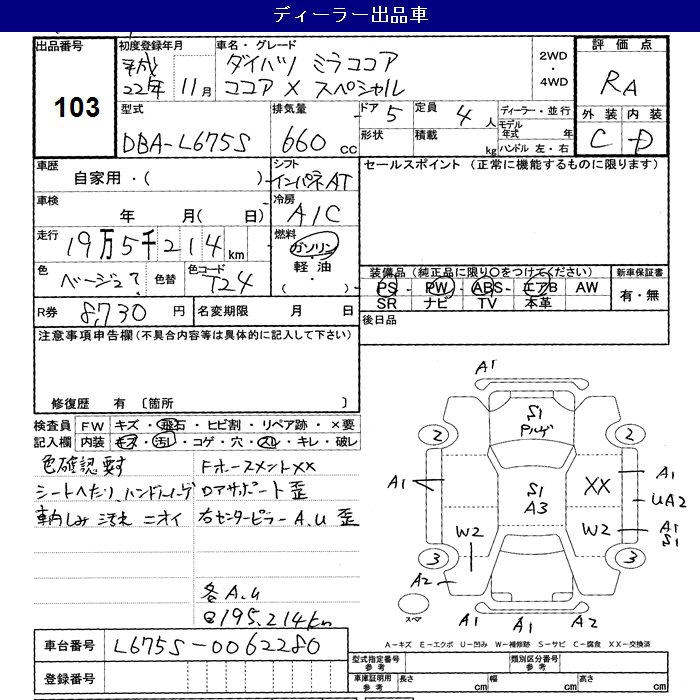 ディーラー出品車
出品番号 103
初度登録年月 平成22年 11月
車名・グレード ダイハツ ミラココア
ココア X スペシャル
2WD ・ 4WD
評価点 RA
外装 内装
C D
型式 DBA-L675S
排気量 660 cc
ドア 5
定員 4 人
形状
積載 kg
ディーラー・並行
モデル年式 年
ハンドル 左・右
車歴 自家用・( )
シフト インパネAT
セールスポイント (正常に機能するものに限ります)
車検 年 月( 日)
冷房 A/C
走行 19万5千214km
燃料 ガソリン・軽油・
色 ベージュ?
色替
色コード T24
装備品(純正品に限り○をつけてください)
PS PW ABS エアB AW
SR ナビ TV 本革
新車保証書 有・無
R券 8,730 円
名変期限 月 日
後日品
注意事項申告欄(不具合内容等は具体的に記入して下さい)
修復歴 有 〔箇所 〕
検査員記入欄
FW キズ・飛石・ヒビ割・リペア跡・×要
内装 キズ・汚レ・コゲ・穴・スレ・キレ・破レ
色確認要す
シートへたり、ハンドルハーゲ
車内しみ 汚れ ニオイ
Fホースメント××
ロアサポート歪
右センターピラーA.U歪
各A.U
195.214km
A1
S1
2 2
A1 S1 A3 XX A1
UA2
W2 W2 A1 S1
3 3
A2
スペア
A1 A1 A2
A-キズ E-エクボ U-凹み W-補修跡 S-サビ C-腐食 XX-交換済
車台番号 L675S-0062280
登録番号
型式指定番号 参考
類別区分番号 参考
車庫証明用 参考 長さ cm 幅 cm 高さ cm